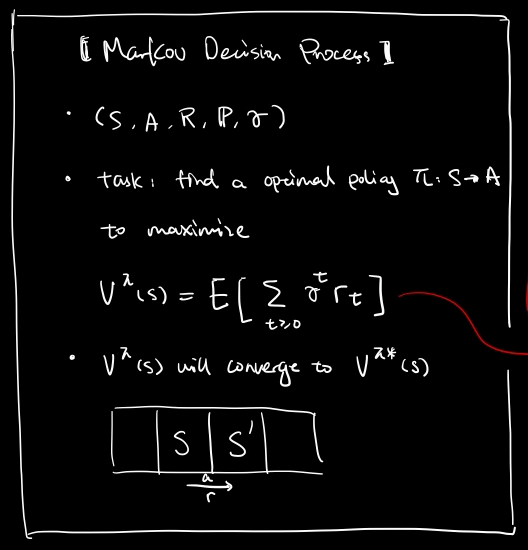 [ Markov Decision Process ]
· (S, A, R, P, γ)
· task: find a optimal policy π: S → A
to maximize
V^π(s) = E[ Σ_{t≥0} γ^t r_t ]
· V^π(s) will converge to V^π*(s)
S S'
a
r